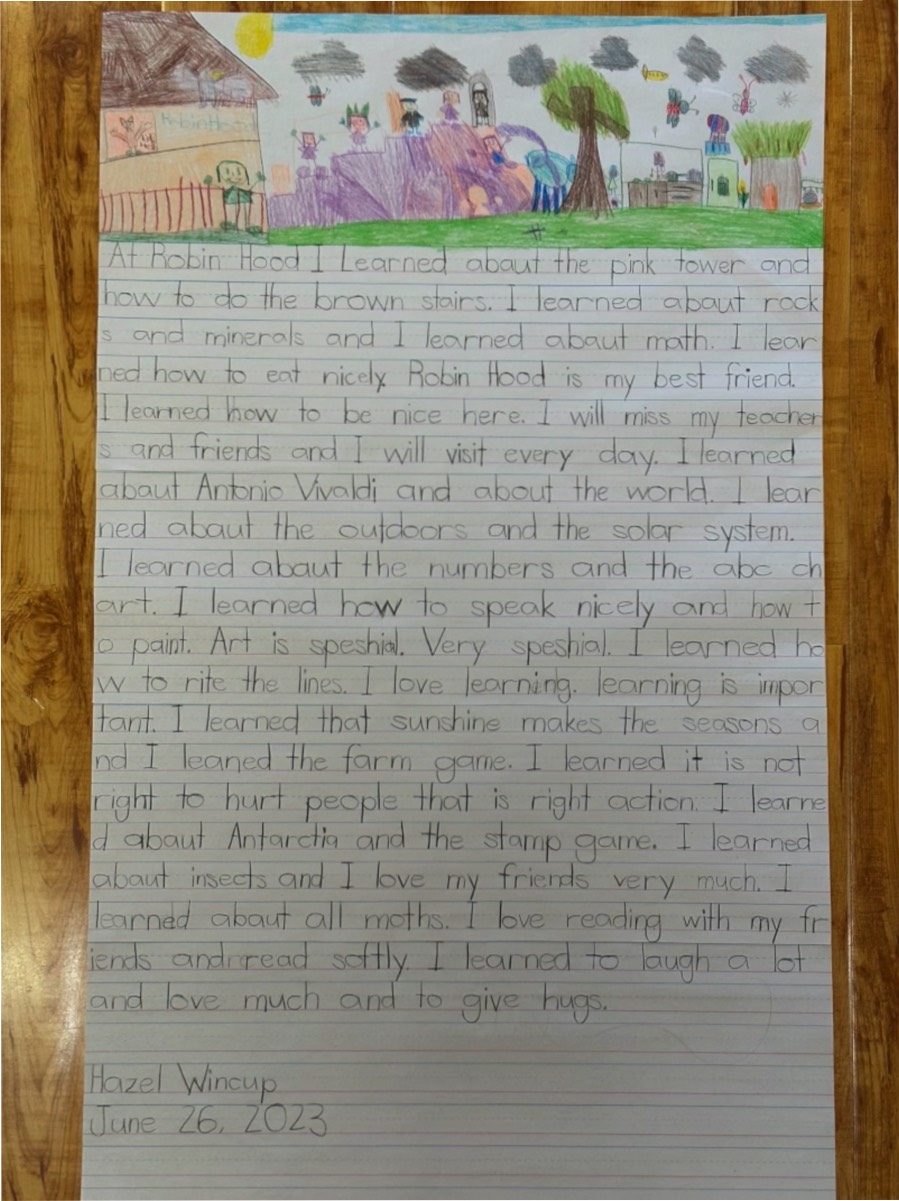 Robin Hood
At Robin Hood I Learned abaut the pink tower and
how to do the brown stairs. I learned abaut rock
s and minerals and I learned abaut math. I lear
ned how to eat nicely. Robin Hood is my best friend.
I learned how to be nice here. I will miss my teacher
s and friends and I will visit every day. I learned
abaut Antonio Vivaldi and about the world. I lear
ned abaut the outdoors and the solar system.
I learned abaut the numbers and the abc ch
art. I learned how to speak nicely and how t
o paint. Art is speshial. Very speshial. I learned ho
w to rite the lines. I love learning. learning is impor
tant. I learned that sunshine makes the seasons a
nd I leaned the farm game. I learned it is not
right to hurt people that is right action. I learne
d abaut Antarctia and the stamp game. I learned
abaut insects and I love my friends very much. I
learned abaut all moths. I love reading with my fr
iends and read softly. I learned to laugh a lot
and love much and to give hugs.
Hazel Wincup
June 26, 2023